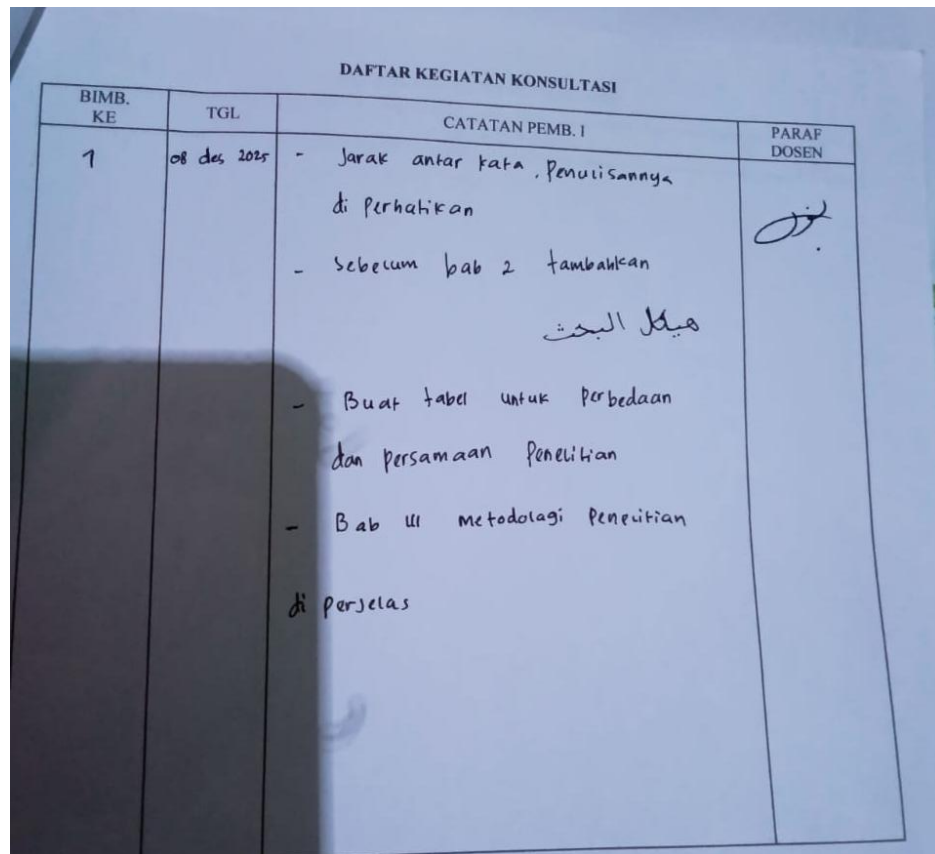 DAFTAR KEGIATAN KONSULTASI
BIMB. KE
TGL
CATATAN PEMB. I
PARAF DOSEN
1
08 des 2025
- Jarak antar kata, Penulisannya
di Perhatikan
- Sebelum bab 2 tambahkan
هيكل البحث
- Buat tabel untuk Perbedaan
dan persamaan Penelitian
- Bab III metodologi Penelitian
di perjelas